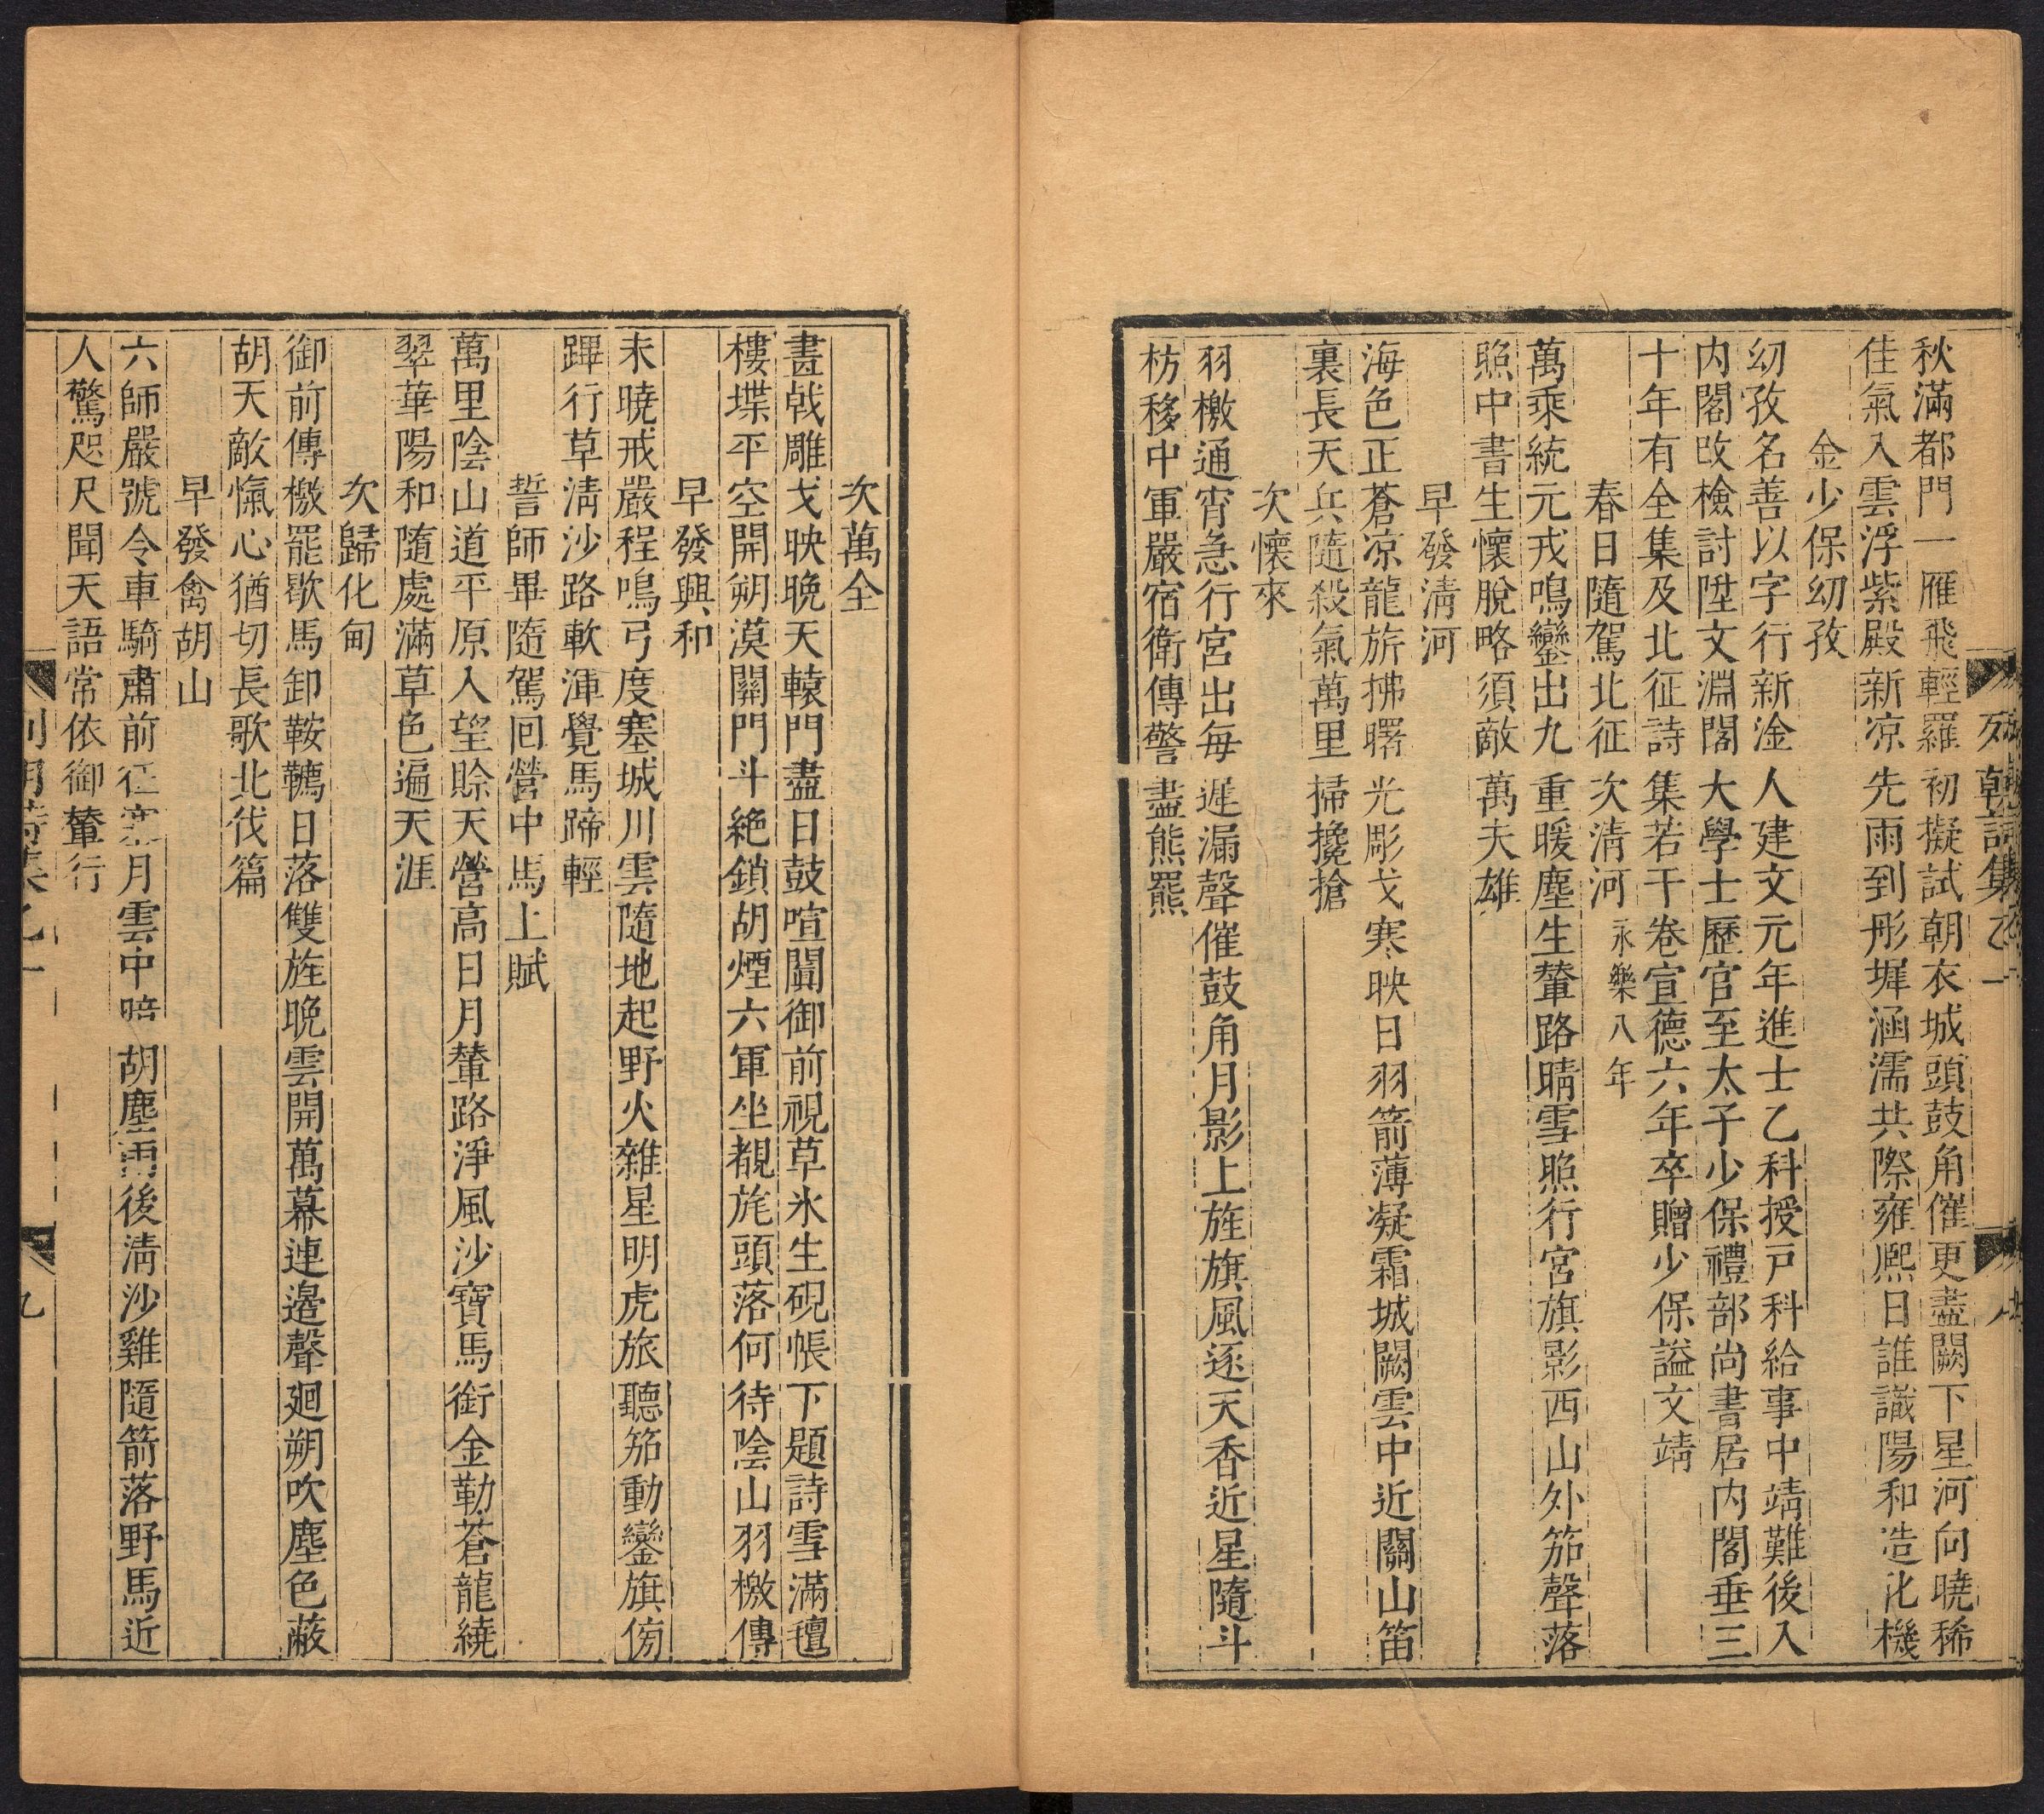 秋滿都門一雁飛輕羅初擬試朝衣城頭鼓角催更盡闕下星河向曉稀
佳氣入雲浮紫殿新凉先雨到彤墀涵濡共際雍熙日誰識陽和造化機
金少保幼孜
幼孜名善以字行新淦人建文元年進士乙科授戸科給事中靖難後入
内閣改檢討陞文淵閣大學士歷官至太子少保禮部尚書居内閣垂三
十年有全集及北征詩集若干卷宣德六年卒贈少保謚文靖
春日隨駕北征次淸河永樂八年
萬乘統元戎鳴鑾出九重暖塵生輦路晴雪照行宮旗影西山外笳聲落
照中書生懷脫略須敵萬夫雄
早發淸河
海色正蒼凉龍旂拂曙光彫戈寒映日羽箭薄凝霜城闕雲中近關山笛
裏長天兵隨殺氣萬里掃攙搶
次懷來
羽檄通宵急行宮出每遲漏聲催鼓角月影上旌旗風逐天香近星隨斗
枋移中軍嚴宿衛傳警盡熊羆
次萬全
畫戟雕戈映晩天轅門盡日鼓喧闐御前視草氷生硯帳下題詩雪滿氊
樓堞平空開朔漠關門斗絶鎖胡煙六軍坐覩旄頭落何待陰山羽檄傳
早發興和
未曉戒嚴程鳴弓度塞城川雲隨地起野火雜星明虎旅聽笳動鑾旗傍
蹕行草淸沙路軟渾覺馬蹄輕
誓師畢隨駕回營中馬上賦
萬里陰山道平原入望賒天營高日月輦路淨風沙寶馬銜金勒蒼龍繞
翠華陽和隨處滿草色遍天涯
次歸化甸
御前傳檄罷歇馬卸鞍韉日落雙旌晩雲開萬幕連邊聲廻朔吹塵色蔽
胡天敵愾心猶切長歌北伐篇
早發禽胡山
六師嚴號令車騎肅前征塞月雲中暗胡塵雨後淸沙雞隨箭落野馬近
人驚咫尺聞天語常依御輦行
九